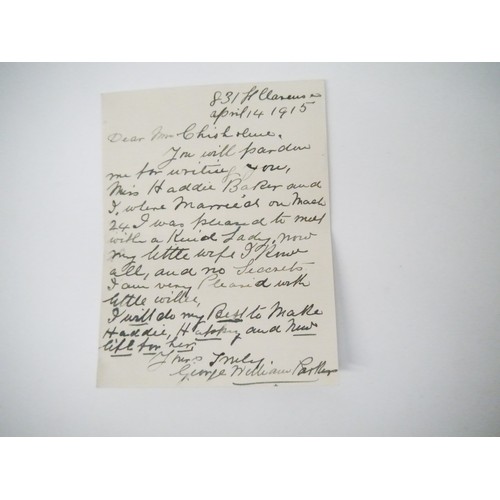 831 St Clarens
April 14 1915
Dear Mrs Chisholme.
You will pardon
me for writing you,
Miss Haddie Baker and
I, where Married on Mach
24 I was pleased to meet
with a Kind Lady, now
my little wife I Know
all, and no Secrets
I am very Pleasid with
little wife,
I will do my Best to Make
Haddie, Happy and New
life for her,
Yours Truley
George William